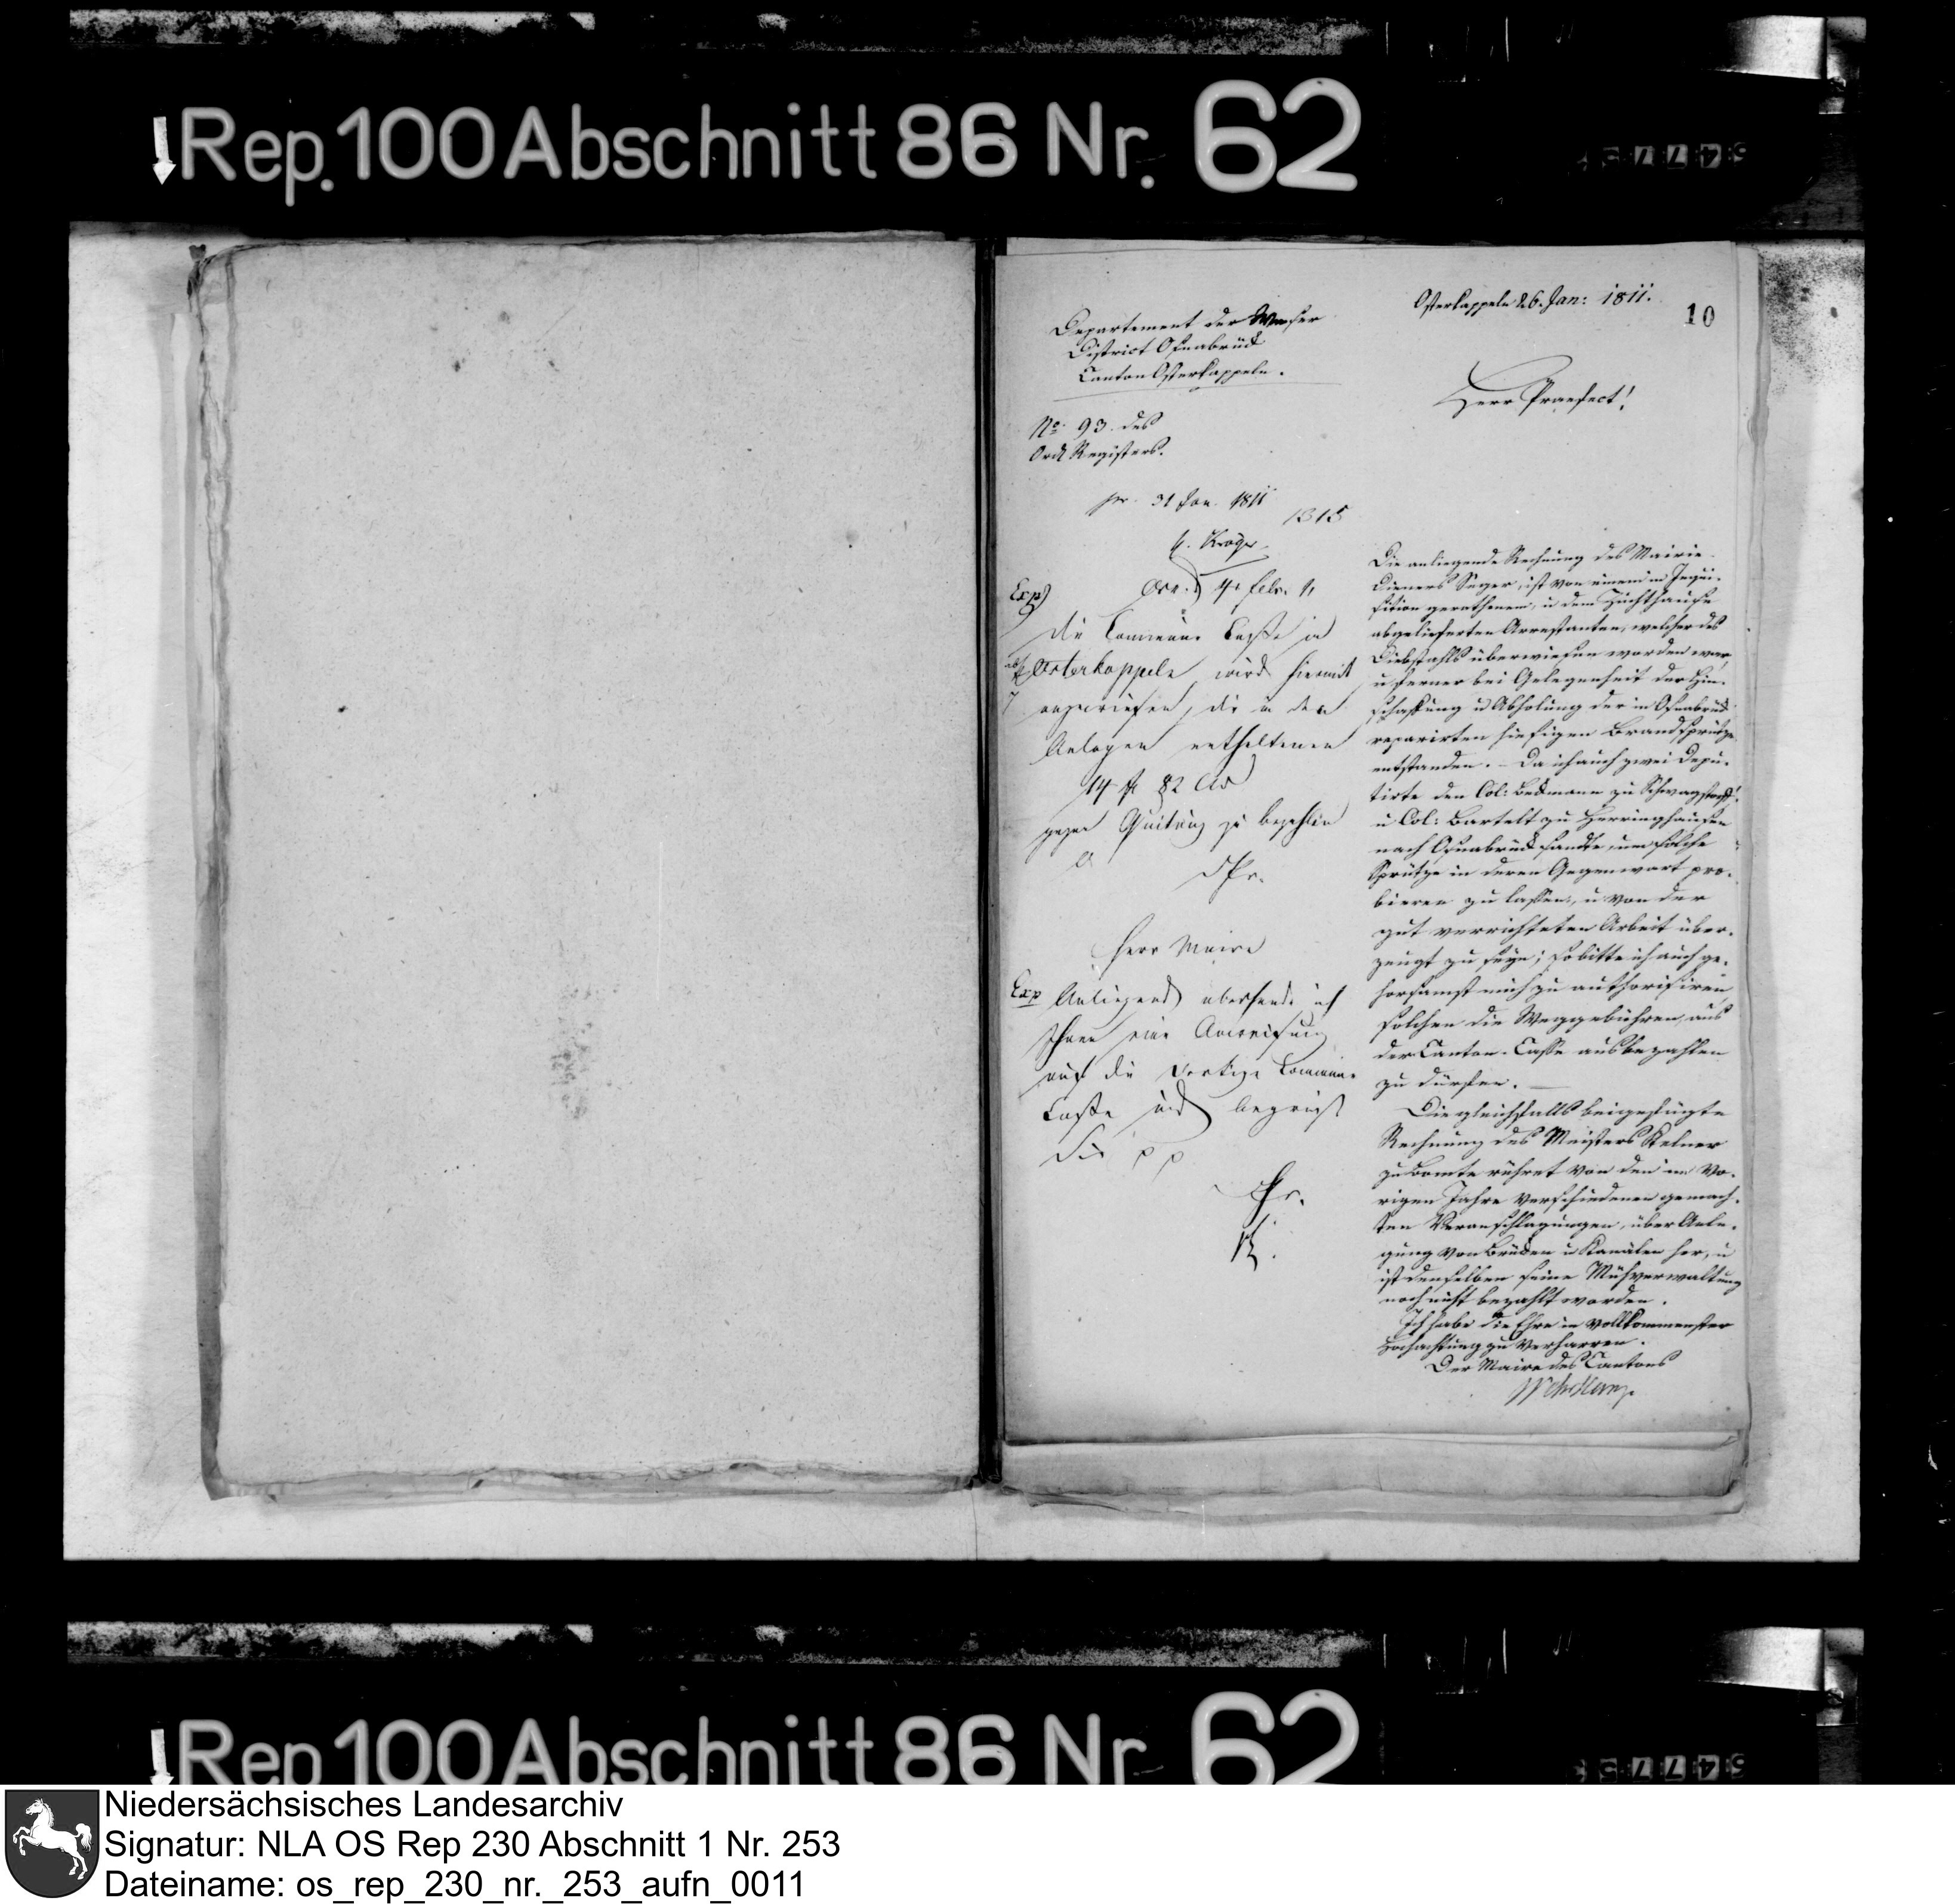 Rep. 100 Abschnitt 86 Nr. 62
Osterkappeln 26. Jan: 1811.
10
Departement der Weser
District Osnabrück
Canton Osterkappeln.
Herr Praefect!
No. 93. des
Ord. Registers.
pr. 31 Jan. 1811
1315
Kröger
Exp
Osn. 4. Febr. 11
Die Commune Casse in
Osterkappeln wird hiermit
angewiesen, die in den
Anlagen enthaltenen
14 fr 82 Cts
gegen Quitung zu bezahlen
DPr.
Herr Maire
Exp Anliegend übersende ich
Ihnen eine Anweisung
auf die dortige Commune
Casse und begrüße
Sie p p
Pr.
K.
Die anliegende Rechnung des Mairie-
Dieners Seger, ist von einem in Inqui-
sition gerathenen, u dem Zuchthause
abgelieferten Arrestanten, welcher des
Diebstahls überwiesen worden war,
u ferner bei Gelegenheit der Hin-
schaffung u Abholung der in Osnabrück
reparirten hiesigen Brandsprütze
entstanden. – Da ich auch zwei Depu-
tirte den Col: Beckmann zu Schwagstorf
u Col: Bartelt zu Herringhausen
nach Osnabrück sandte, um solche
Sprütze in deren Gegenwart pro-
bieren zu lassen, u von der
gut verrichteten Arbeit über-
zeugt zu seyn; so bitte ich auch ge-
horsamst mich zu authorisiren,
solchen die Weggebühren, aus
der Canton-Casse ausbezahlen
zu dürfen. —
Die gleichfalls beigefügte
Rechnung des Meisters Kelner
zu Bomte rühret von den im vo-
rigen Jahre verschiedenen gemach-
ten Veranschlagungen, über Anle-
gung von Brücken u Kanälen her, u
ist denselben seine Mühverwaltung
noch nicht bezahlt worden.
Ich habe die Ehre in vollkommenster
Hochachtung zu verharren.
Der Maire des Cantons
Rep 100 Abschnitt 86 Nr 62
Niedersächsisches Landesarchiv
Signatur: NLA OS Rep 230 Abschnitt 1 Nr. 253
Dateiname: os_rep_230_nr._253_aufn_0011